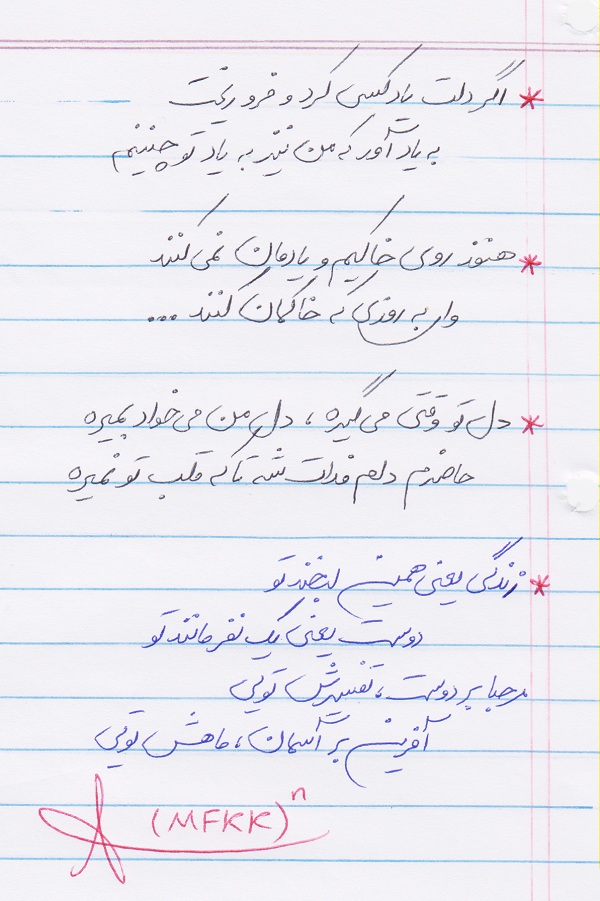 * اگر دلت یاد کسی کرد و فرو ریخت
به یاد آور که من نیز به یاد تو چنینم
* هنوز روی خاکیم و یادمان نمی کنند
وای به روزی که خاکمان کنند ...
* دل تو وقتی می گیره ، دل من می خواد بمیره
حاضرم دلم فدات شه تا که قلب تو نمیره
* زندگی یعنی همین لبخند تو
دوست یعنی یک نفر مانند تو
مرحبا بر دوست ، تفسیرش تویی
آفرین بر آسمان ، ماهش تویی
(MFKK)ⁿ